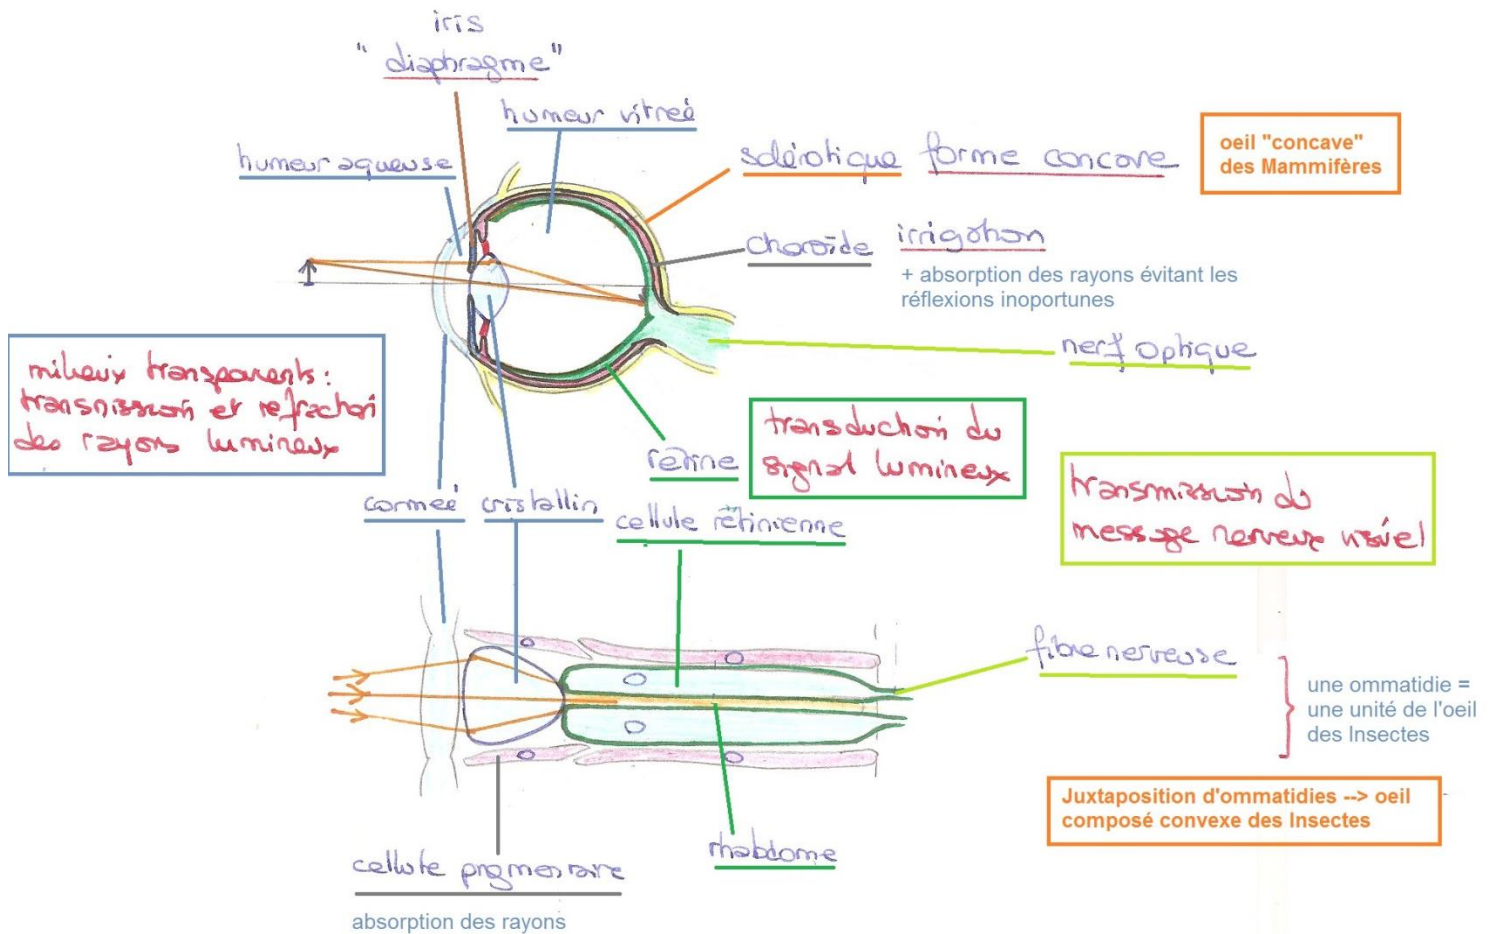 iris
"diaphragme"
humeur vitreé
humeur aqueuse
sclérotique forme concave
oeil "concave"
des Mammifères
choroïde irrigation
+ absorption des rayons évitant les
réflexions inoportunes
nerf optique
milieux transparents:
transmission et refraction
des rayons lumineux
transduction du
signal lumineux
rétine
transmission du
message nerveux visuel
corneé cristallin
cellule rétinienne
fibre nerveuse
une ommatidie =
une unité de l'oeil
des Insectes
Juxtaposition d'ommatidies --> oeil
composé convexe des Insectes
rhabdome
cellule pigmentaire
absorption des rayons